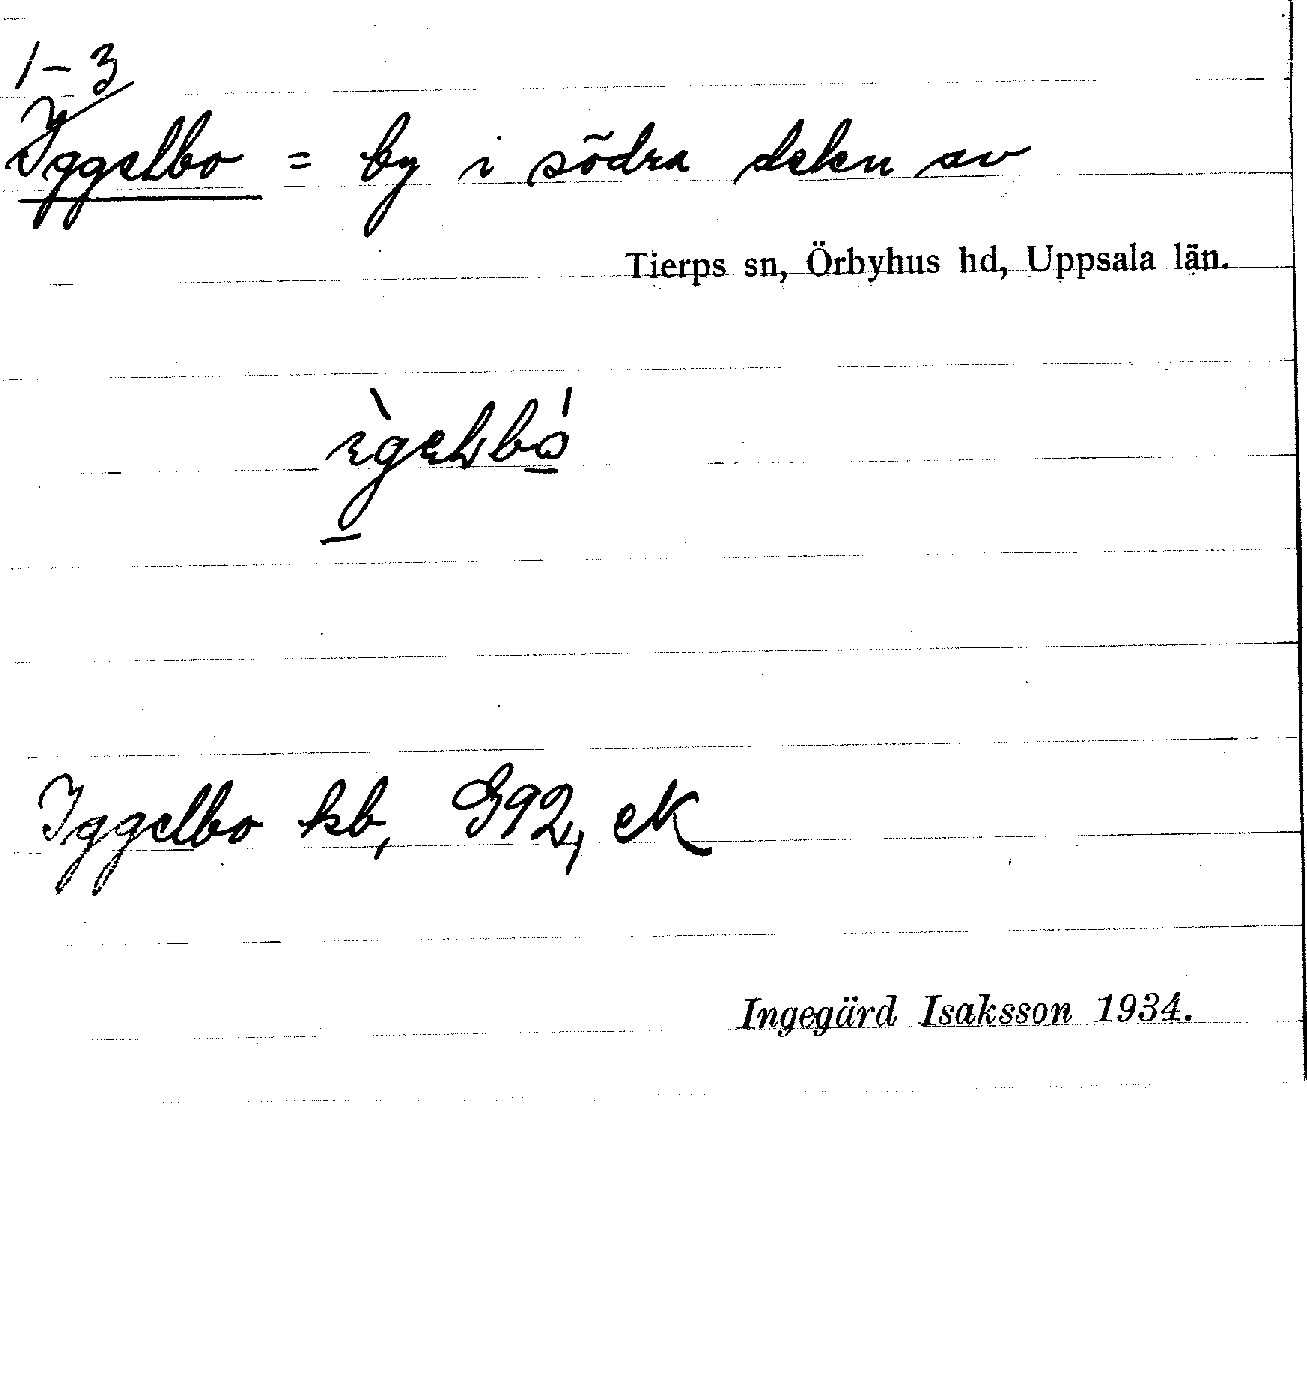 1-3
Iggelbo = by i södra delen av
Tierps sn, Örbyhus hd, Uppsala län.
Iggelbo kb, G92, eK
Ingegärd Isaksson 1934.